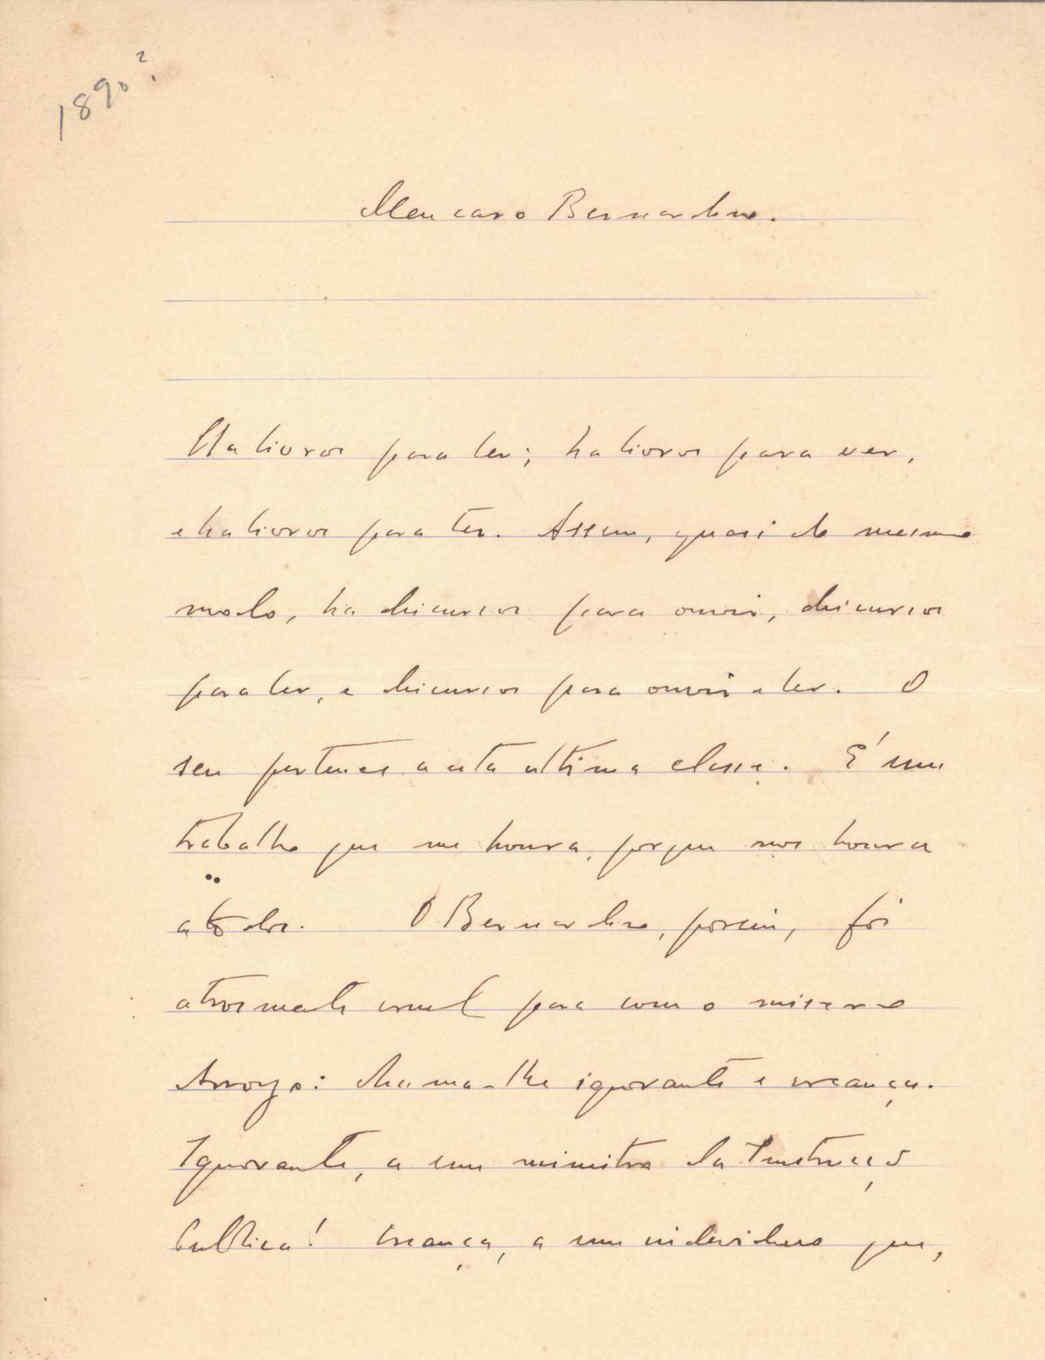 1890?
Meu caro Bernardino.
Ha livros para ler; ha livros para ver,
e ha livros para ter. Assim, quasi do mesmo
modo, ha discursos para ouvir, discursos
para ler, e discursos para ouvir e ler. O
seu pertence a esta ultima classe. É um
trabalho que me honra, porque nos honra
a todos. O Bernardino, porém, foi
atrozmente cruel para com o misero
Arroyo: chama-lhe ignorante e creança.
Ignorante, a um ministro da Instrucção
Publica! Creança, a um individuo que,